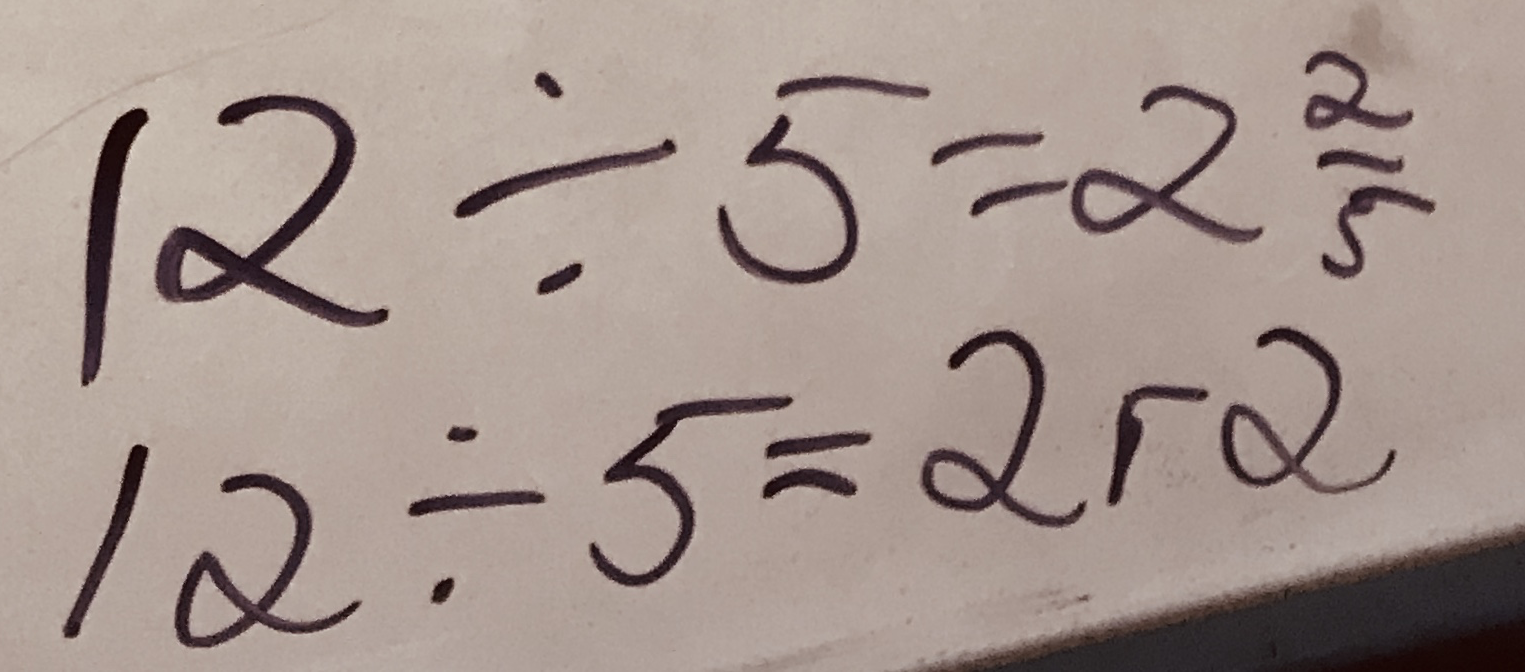 12 ÷ 5 = 2 2/5
12 ÷ 5 = 2 r 2